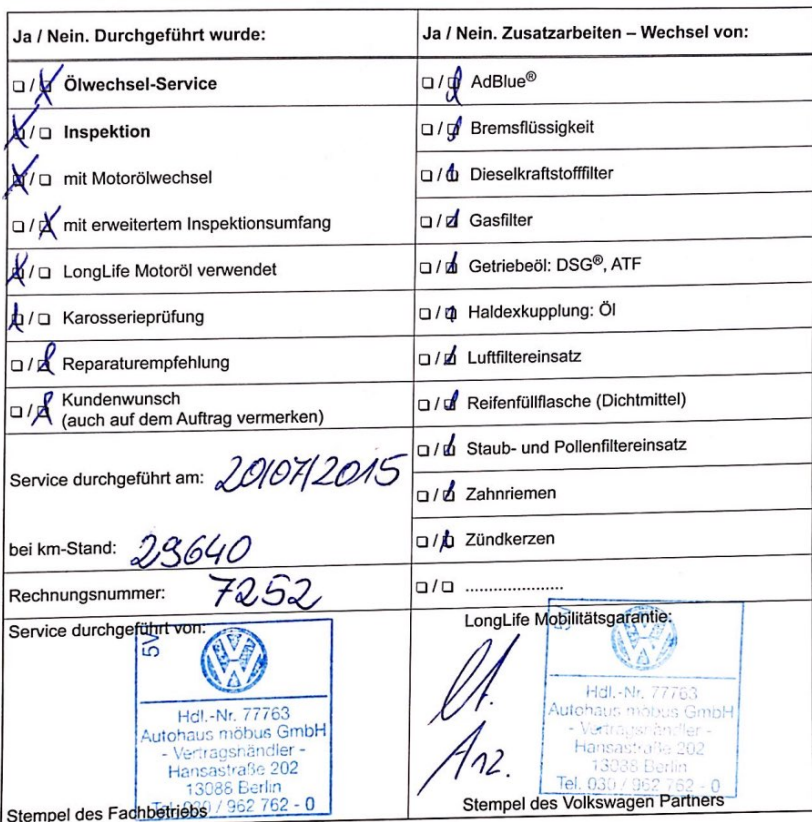 Ja / Nein. Durchgeführt wurde:
☐/☒ Ölwechsel-Service
☒/☐ Inspektion
☒/☐ mit Motorölwechsel
☐/☒ mit erweitertem Inspektionsumfang
☒/☐ LongLife Motoröl verwendet
☒/☐ Karosserieprüfung
☐/☒ Reparaturempfehlung
☐/☒ Kundenwunsch
(auch auf dem Auftrag vermerken)
Service durchgeführt am: 20/07/2015
bei km-Stand: 29640
Rechnungsnummer: 7252
Service durchgeführt von:
5V
Hdl.-Nr. 77763
Autohaus möbus GmbH
- Vertragshändler -
Hansastraße 202
13088 Berlin
Tel. 030 / 962 762 - 0
Stempel des Fachbetriebs
Ja / Nein. Zusatzarbeiten – Wechsel von:
☐/☒ AdBlue®
☐/☒ Bremsflüssigkeit
☐/☒ Dieselkraftstofffilter
☐/☒ Gasfilter
☐/☒ Getriebeöl: DSG®, ATF
☐/☒ Haldexkupplung: Öl
☐/☒ Luftfiltereinsatz
☐/☒ Reifenfüllflasche (Dichtmittel)
☐/☒ Staub- und Pollenfiltereinsatz
☐/☒ Zahnriemen
☐/☒ Zündkerzen
☐/☐ ......................
LongLife Mobilitätsgarantie:
lt.
Anz.
5V
Hdl.-Nr. 77763
Autohaus möbus GmbH
- Vertragshändler -
Hansastraße 202
13088 Berlin
Tel. 030 / 962 762 - 0
Stempel des Volkswagen Partners